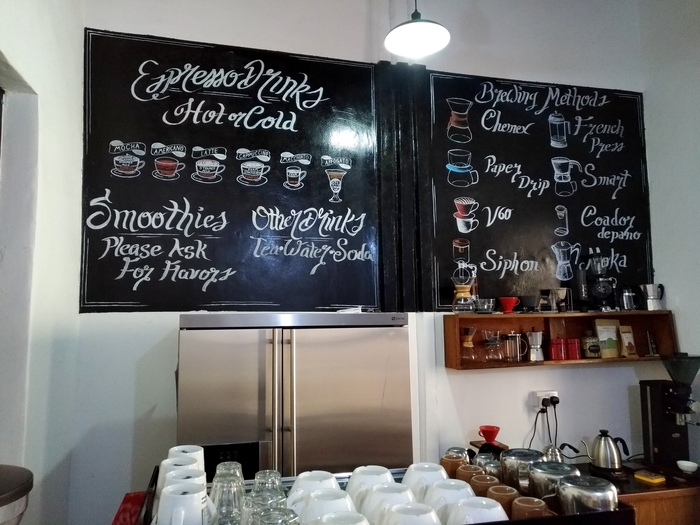 Espresso Drinks
Hot or Cold
MOCHA
AMERICANO
LATTE
CAPPUCCINO
MACCHIATO
AFFOGATO
Smoothies
Please Ask
For Flavors
Other Drinks
Tea·Water·Soda
Brewing Methods
Chemex
French
Press
Paper
Drip
Smart
V60
Coador
de paño
Siphon
Moka